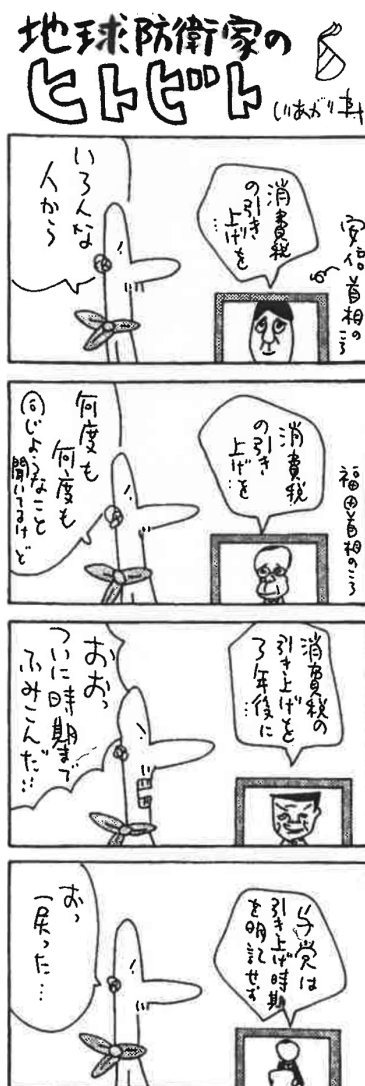 地球防衛家の
ヒトビト
しりあがり寿
安倍首相のころ
消費税
の引き
上げを
…
いろんな
人から
福田首相のころ
消費税
の引き
上げを
…
何度も
何度も
同じようなこと
聞いてるけど
消費税の
引き上げを
3年後に
…
おおっ
ついに時期まで
ふみこんだ…
与党は
引き上げ時期
を明記せず
おっ
戻った…